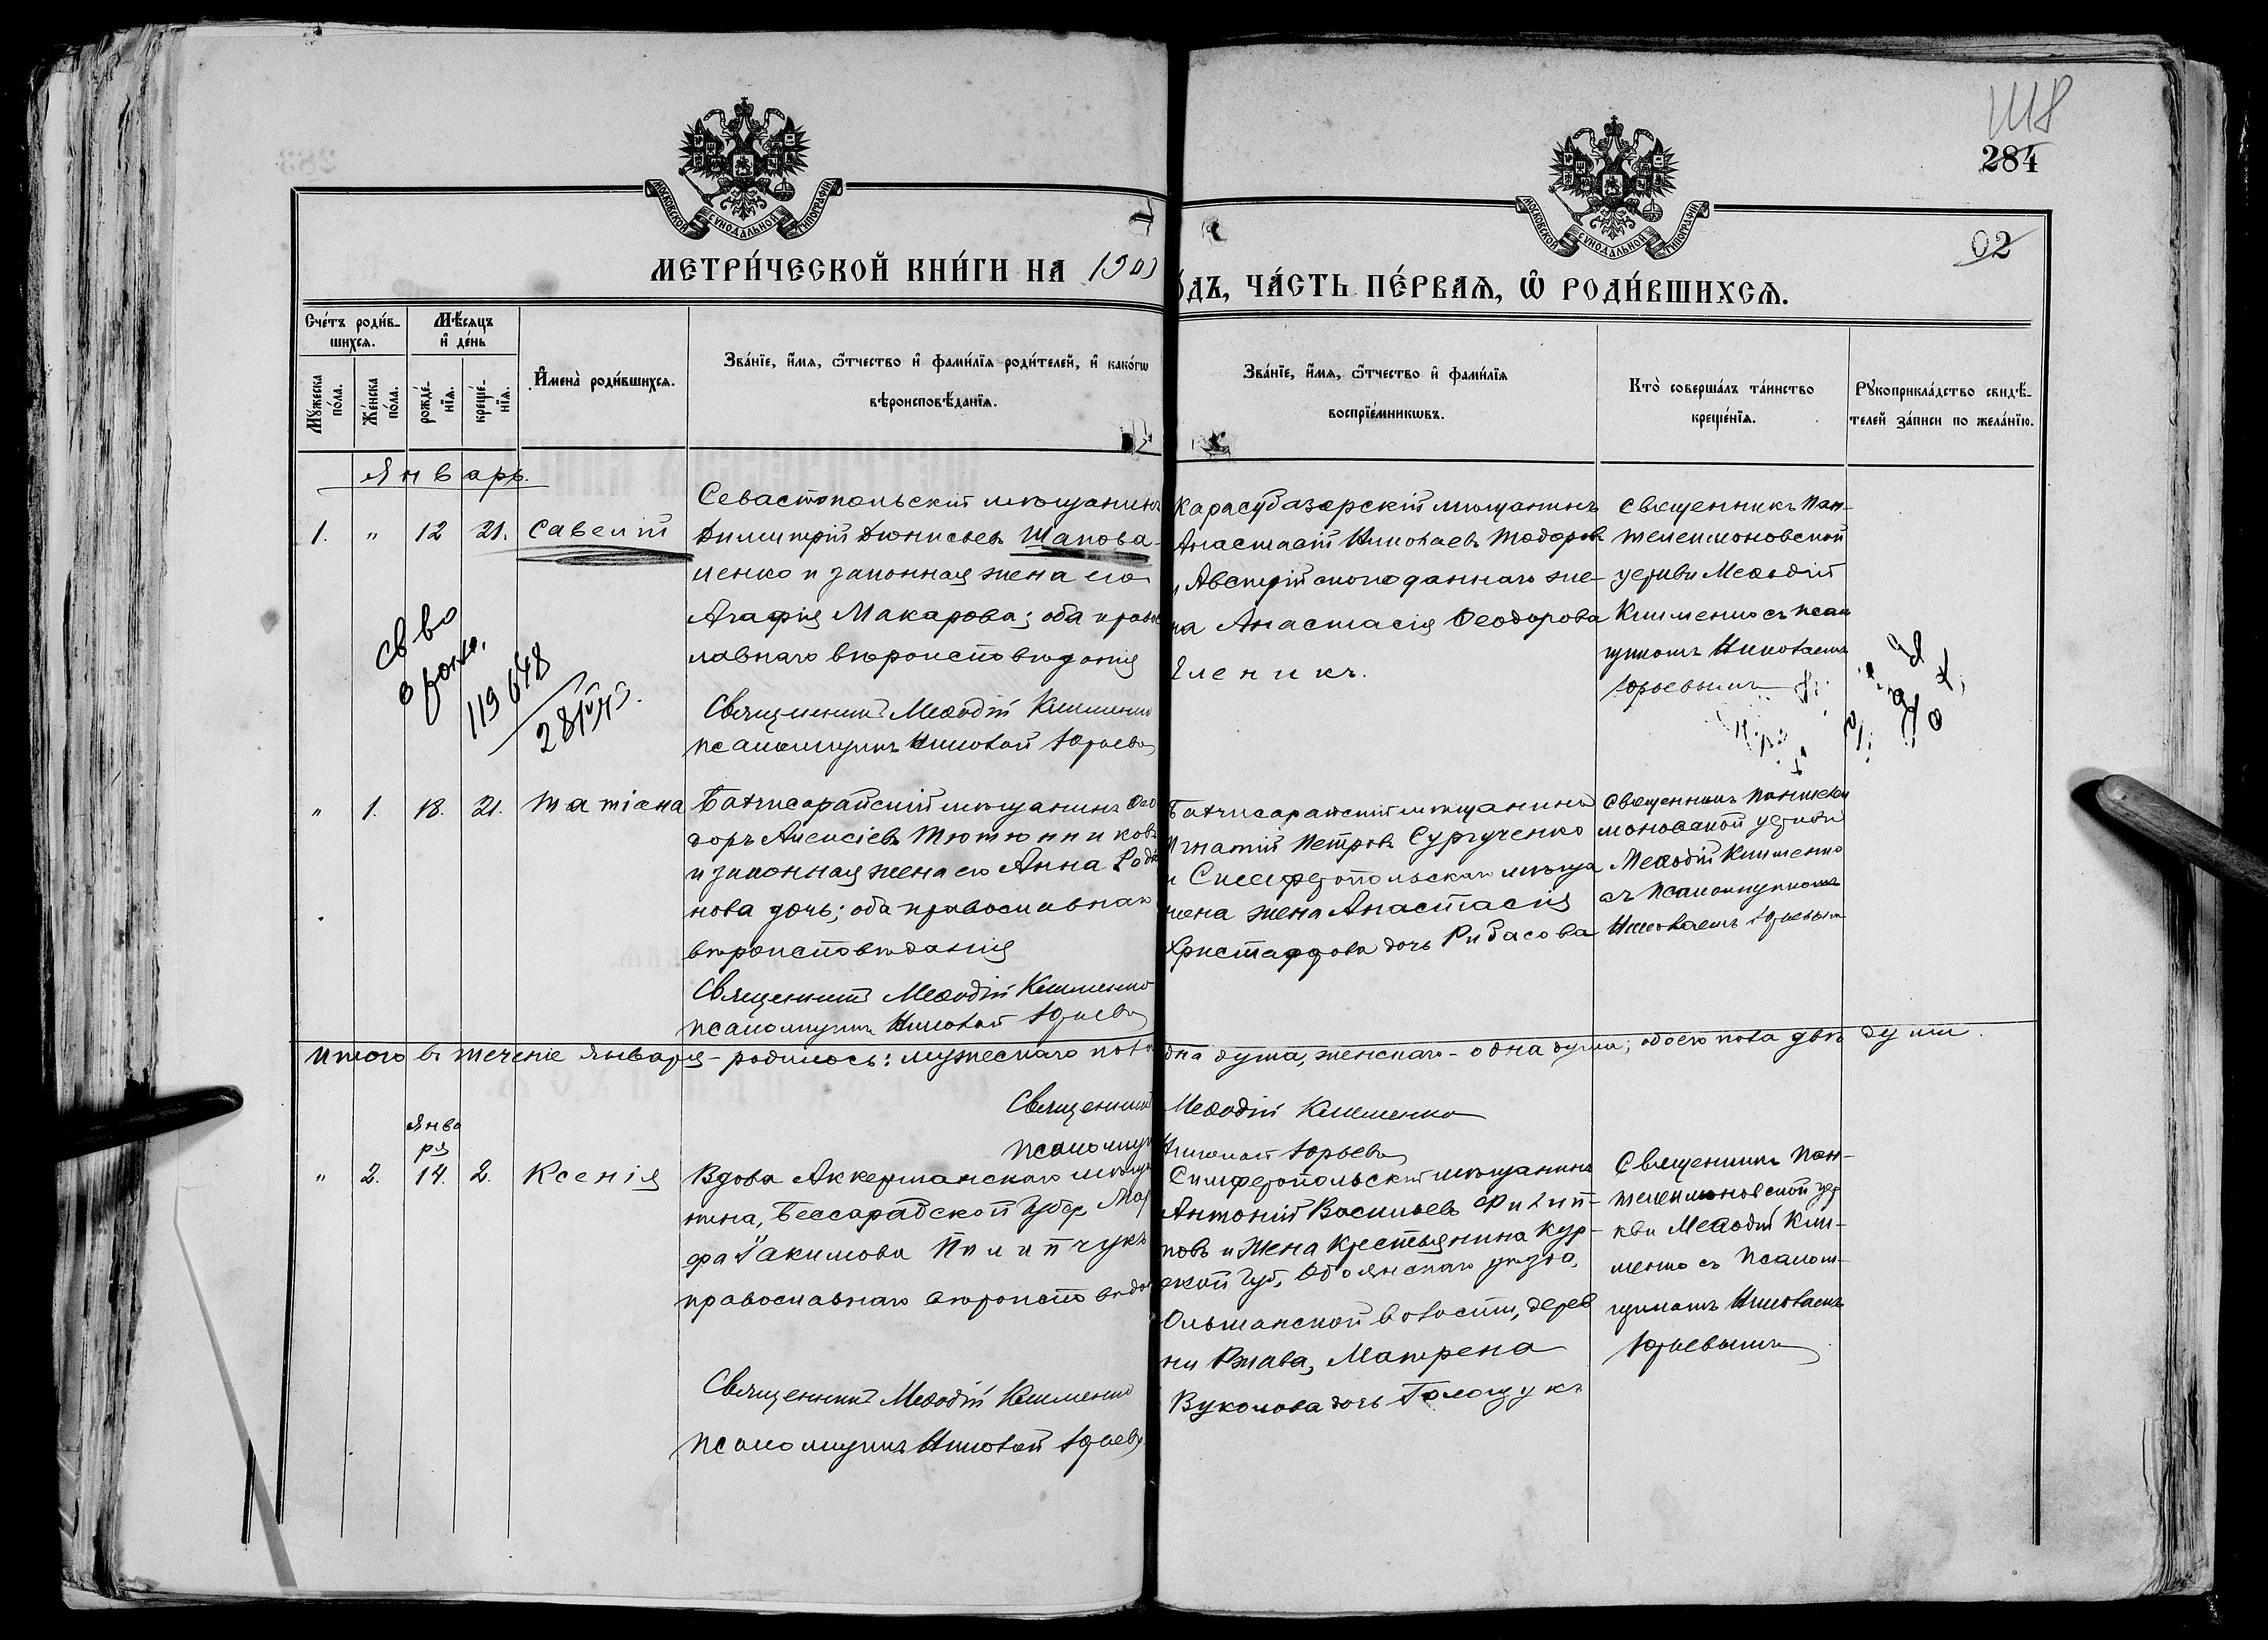 Ш8
284
02
МОСКОВСКОЙ СѴНОДАЛЬНОЙ ТИПОГРАФІИ
МОСКОВСКОЙ СѴНОДАЛЬНОЙ ТИПОГРАФІИ
МЕТРИ́ЧЕСКОЙ КНИ́ГИ НА 190
ДЪ, ЧА́СТЬ ПЕ́РВАЯ, Ѡ РОДИ́ВШИХСЯ.
Сче́тъ роди́в-
шихся.
Му́жеска
по́ла.
Же́нска
по́ла.
Мѣ́сяцъ
и де́нь
рожде́-
нїя.
креще́-
нїя.
Имена̀ роди́вшихся.
Зва́нїе, и́мя, ѻ́тчество и фами́лїя роди́телей, и како́гѡ
вѣроисповѣ́данїя.
Зва́нїе, и́мя, ѻ́тчество и фами́лїя
воспрїе́мникѡвъ.
Кто̀ соверша́лъ та́инство
креще́нїя.
Рꙋкоприкла́дство свидѣ́-
телей за́писи по жела́нїю.
Январь.
1. " 12 21. Савелій
Севастопольскій мѣщанинъ
Димитрій Діонисьевъ Шапова-
ленко и законная жена его
Агафія Макарова; оба правос
лавнаго вѣроисповѣданія
Священникъ Меѳодій Клименко
псаломщикъ Николай Юрьевъ
Карасубазарскій мѣщанинъ
Анастасій Николаевъ Тодоров
и Австрійскоподданнаго же-
на Анастасія Ѳеодорова
Еленикъ.
Священникъ Пан-
телеимоновской
церкви Меѳодій
Клименко съ псал
щикомъ Николаемъ
Юрьевымъ
св во
119648
" 1. 18. 21. Татіана
Бахчисарайскій мѣщанинъ Ѳео
доръ Алексіевъ Тютюнниковъ
и законная жена его Анна Родіо
нова дочь; оба православнаго
вѣроисповѣданія
Священникъ Меѳодій Клименко
псаломщикъ Николай Юрьевъ
Бахчисарайскій мѣщанинъ
Игнатій Петровъ Сургученко
и Симферопольскаго мѣща
нина жена Анастасія
Христофорова дочь Рибасова
Священникъ Пантелеи
моновской церкви
Меѳодій Клименко
съ псаломщикомъ
Николаемъ Юрьевымъ
Итого въ теченіе Января - родилось: мужескаго пола
дна душа, женскаго - одна душа; обоего пола двѣ души.
Священникъ Меѳодій Клименко
псаломщикъ Николай Юрьевъ
Янва
ря
" 2. 14. 2. Ксенія
Вдова Аккерманскаго мѣща
нина, Бессарабской Губер. Мар
фа Іакимова Пилипчукъ
православнаго вѣроисповѣдан
Священникъ Меѳодій Клименко
псаломщикъ Николай Юрьевъ
Симферопольскій мѣщанинъ
Антоній Васильевъ Филип-
повъ и жена Крестьянина Кур-
ской Губ. Обоянскаго уѣзда,
Ольшанской волости, дерев
ни Ржава, Матрена
Вуколова дочь Голощукъ
Священникъ Пан-
телеимоновской цер
кви Меѳодій Кли-
менко съ Псалом-
щикомъ Николаемъ
Юрьевымъ